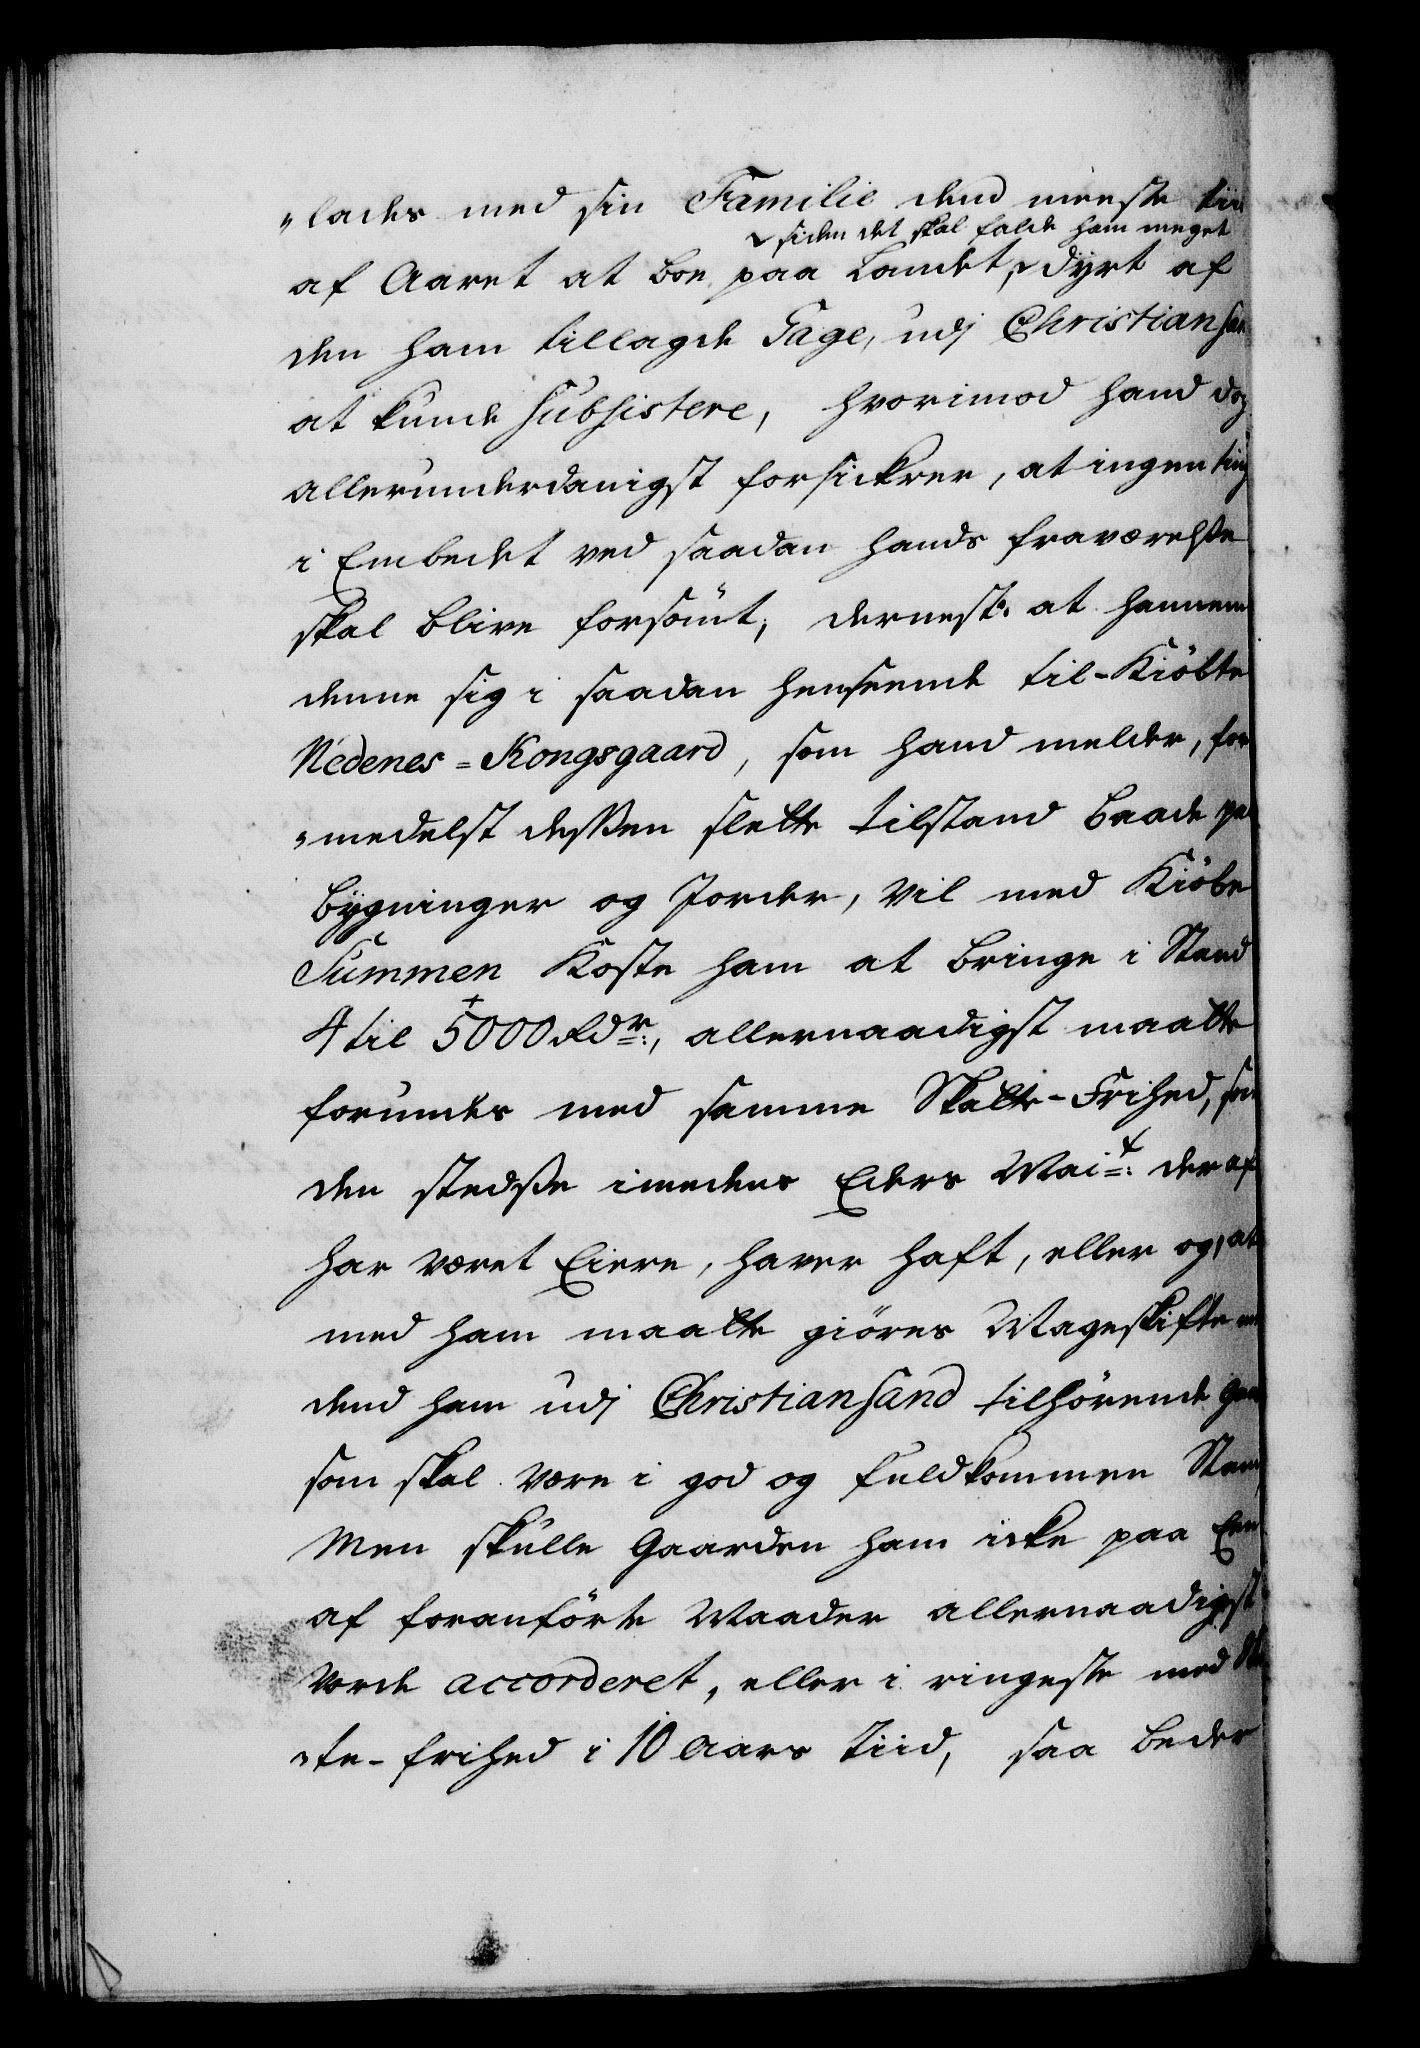 "lades med sin Familie dend meeste tiid
siden det skal falde ham meget
af Aaret at boe paa Landet, dyrt af
den ham tillagde Gage, udj Christiansand
at kunde subsistere, hvorimod hand dog
allerunderdanigst forsickrer, at ingen ting
i Embedet ved saadan hands fraværelsse
skal blive forsömt; dernest at hannem
denne sig i saadan henseende til-Kiöbte
Nedenes-Kongsgaard, som hand melder, for
"medelst dessen slette tilstand baade paa
bygninger og Jorder, vil med Kiöbe
Summen Koste ham at bringe i Stand
4 til 5000 Rdr:, allernaadigst maatte
forundes med samme Skatte-Frihed, som
den stedsse imedens Eders Mait: der af
har været Eiere, haver haft, eller og, at
med ham maatte giöres Mageskifte med
dend ham udj Christiansand tilhörende Gaard
som skal være i god og fuldkommen Stand,
Men skulle Gaarden ham icke paa Een
af foranförte Maader allernaadigst
vorde accorderet, eller i ringeste med Skat
"te-frihed i 10 Aars Tiid, saa beder